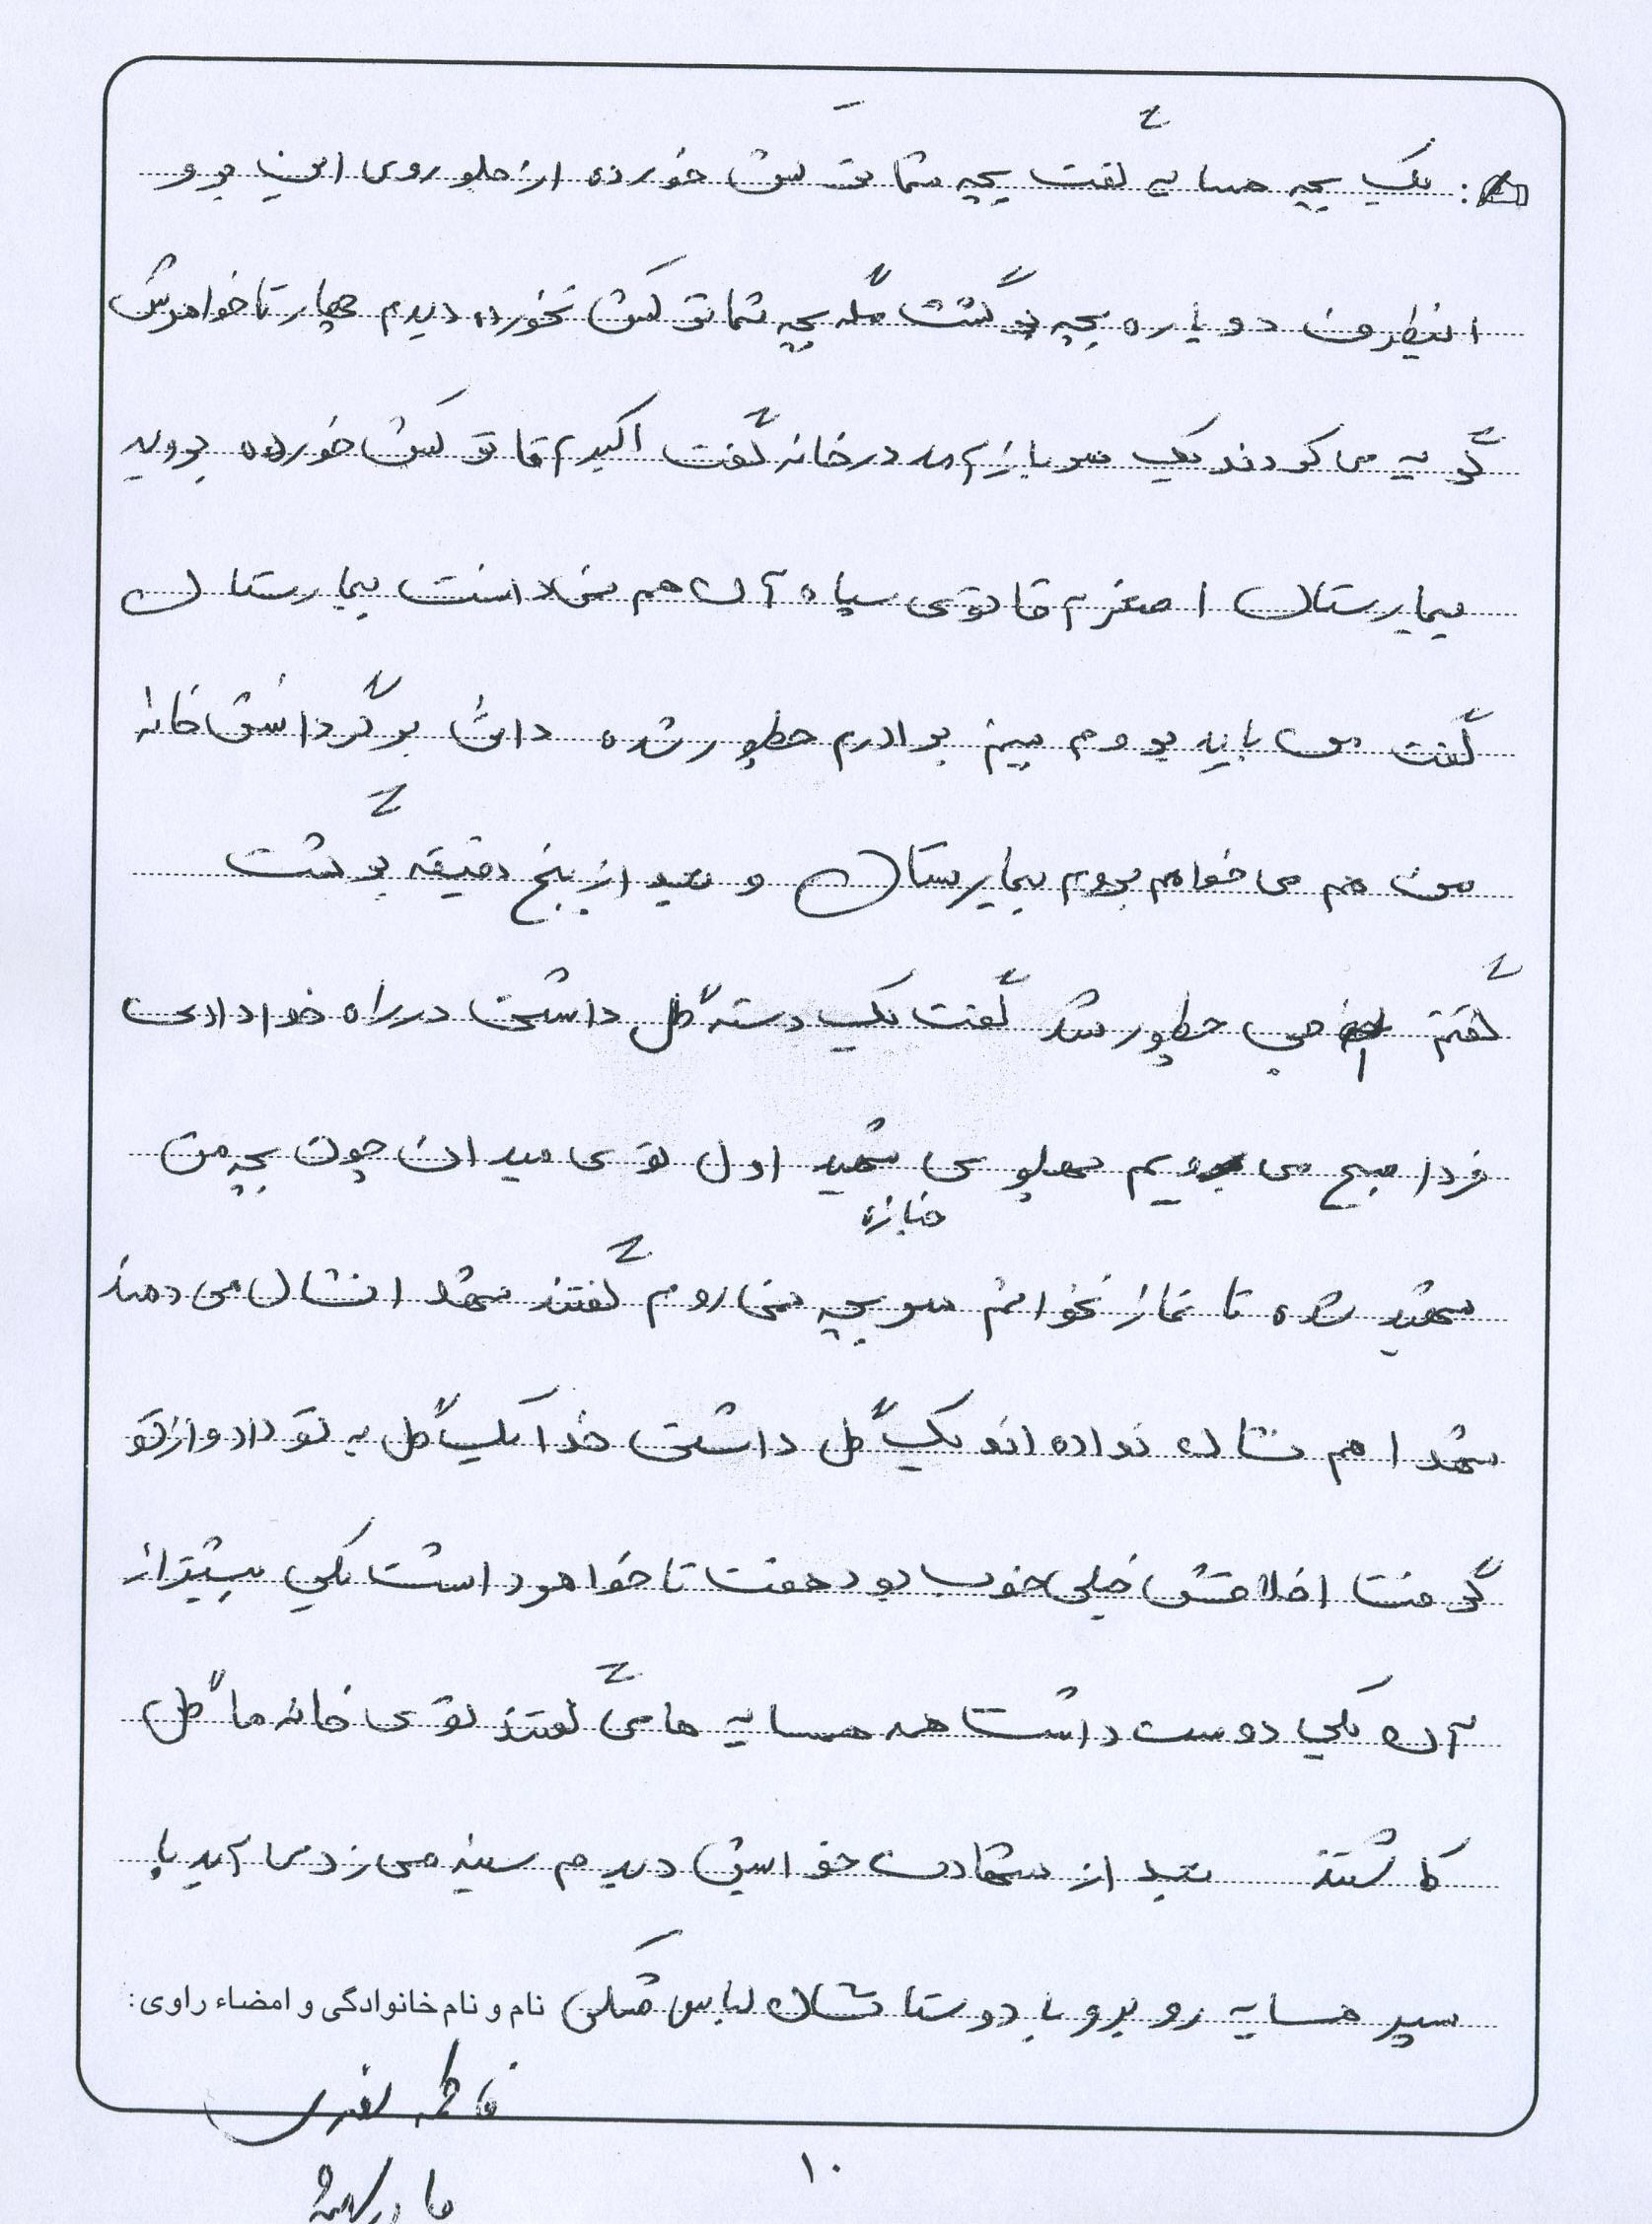 یک بچه همسایه گفت بچه شما ترکش خورده از جلو روی این برو
انطرف دوباره بچه برگشت گفت بچه شما ترکش نخورده دیدم چهار تا خواهرش
گریه می کردند یک سرباز آمد در خانه گفت اکبر آقا ترکش خورده بروید
بیمارستان اصغر آقا توی سپاه آن هم نمی دانست بیمارستان
گفت من باید بروم ببینم برادرم چطور شده دائی برگرداندش خانه
من هم می خواهم بروم بیمارستان و بعد از پنج دقیقه برگشت
گفتم چی چطور شد گفت یک دسته گل داشتی در راه خدا دادی
فردا صبح می رویم پهلوی شهید اول توی میدان چون بچه من
جنازه
شهید شده تا نماز نخوانم سر بچه نمی روم گفتند شهدا نشان می دهند
شهدا هم نشان نداده اند یک گل داشتی خدا یک گل به تو داد و از تو
گرفت اخلاقش خیلی خوب بود هفت تا خواهر داشت یکی بیشتر از
آن یکی دوست داشت همه همسایه ها می گفتند توی خانه ما گل
کاشتند بعد از شهادت خوابش دیدم سینه می زد می آید با
پسر همسایه روبرو با دوستانشان لباس مشکی نام و نام خانوادگی و امضاء راوی:
فاطمه
مادر شهید
۱۰